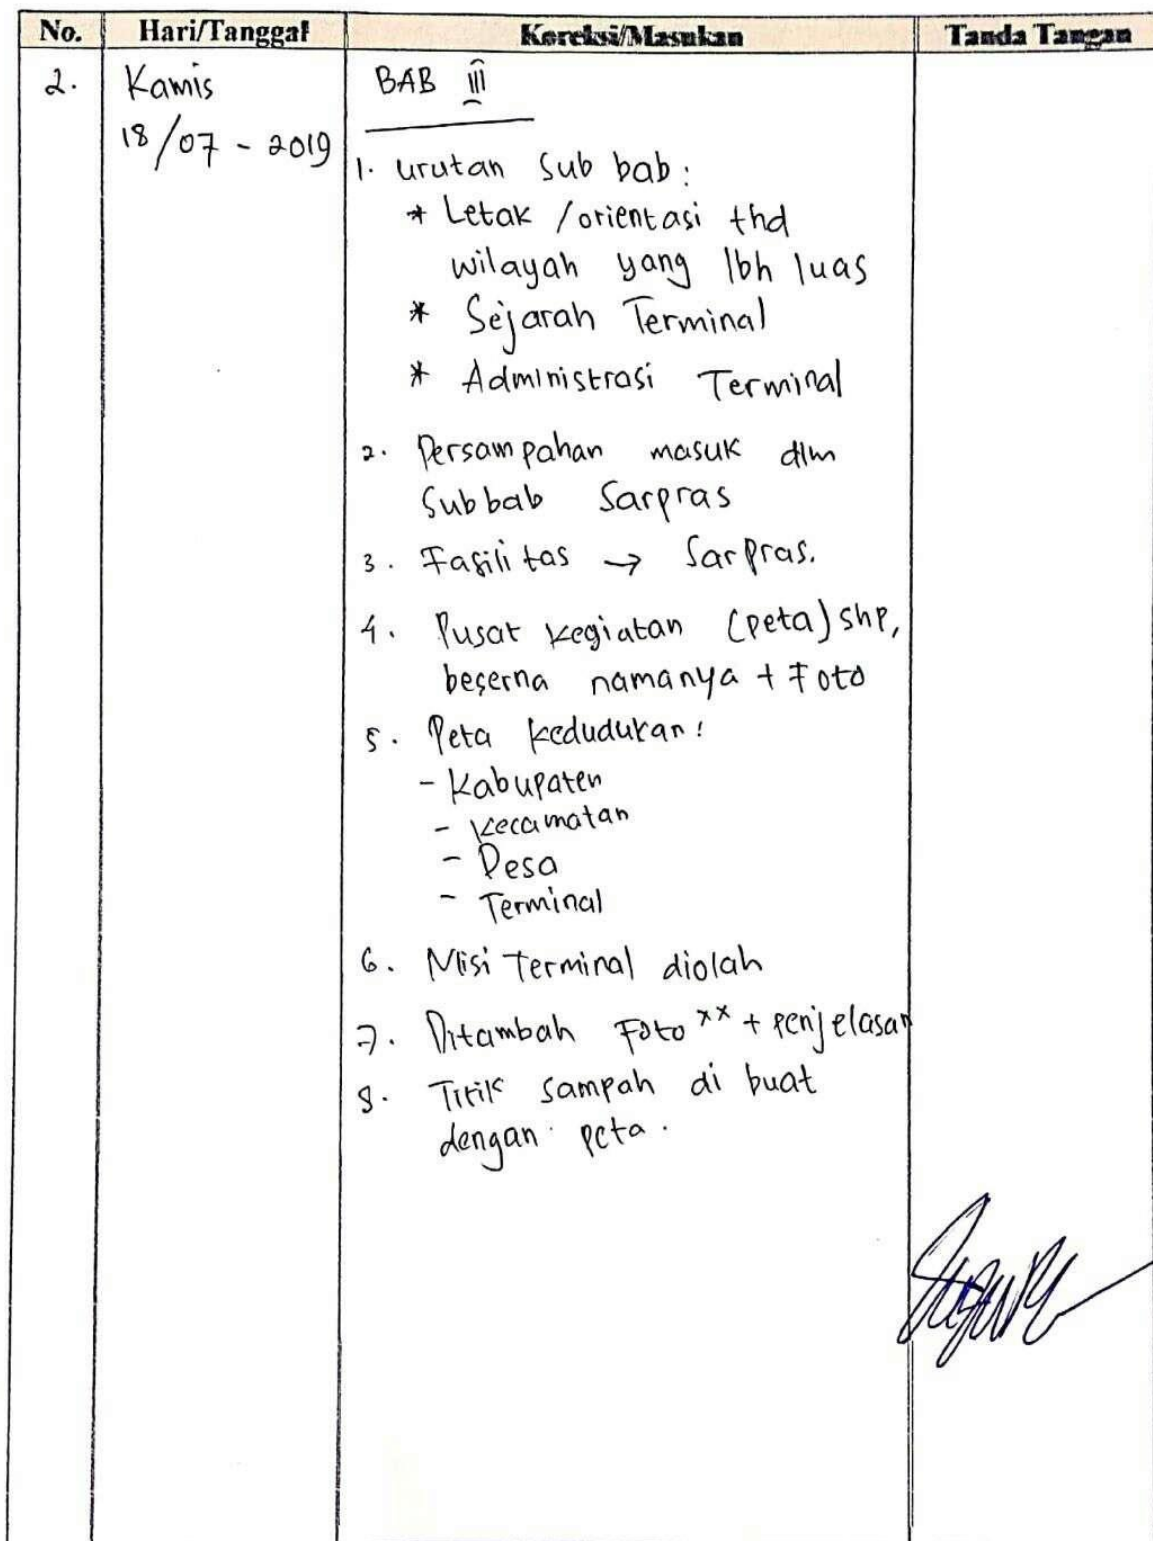 No. Hari/Tanggal Koreksi/Masukan Tanda Tangan
2. Kamis BAB III
18/07 - 2019
1. urutan sub bab:
* Letak /orientasi thd
wilayah yang lbh luas
* Sejarah Terminal
* Administrasi Terminal
2. Persampahan masuk dlm
Subbab Sarpras
3. Fasilitas → Sarpras.
4. Pusat kegiatan (peta) shp,
beserna namanya + Foto
5. Peta kedudukan:
- Kabupaten
- Kecamatan
- Desa
- Terminal
6. Misi Terminal diolah
7. Ditambah Foto xx + penjelasan
8. Titik sampah di buat
dengan peta.